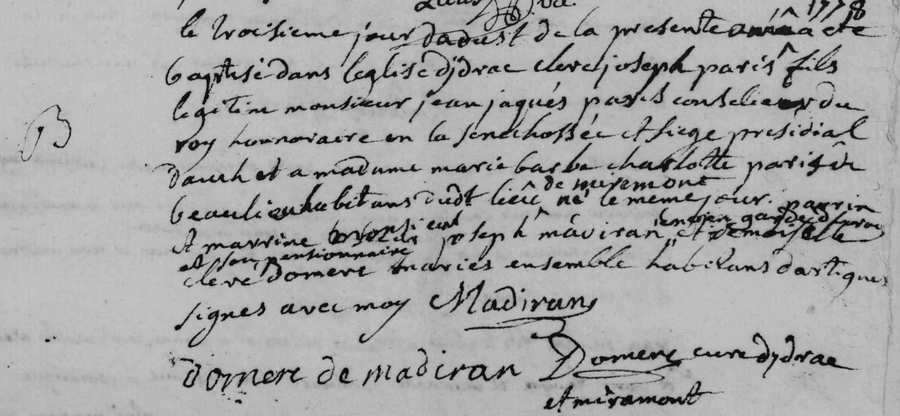 1778
le troisieme jour dadust de la presente année a eté
baptisé dans leglise dydrac clere joseph paris fils
legitime monsieur jean jaqués paris conselieur du
roy honnoraire en la senechossée et siege presidial
dauch et a madame marie barbe charlotte paris de
beaulieu habitans dudt lieu de miremont né le meme jour parrin
et marrine monsieur joseph madiran ancien garde du roy
et son pensionnaire et demoiselle
clere domerc mariés ensemble habitans dartigues
signes avec moy Madiran
domerc de madiran Domerc cure dydrac
et miramont
B